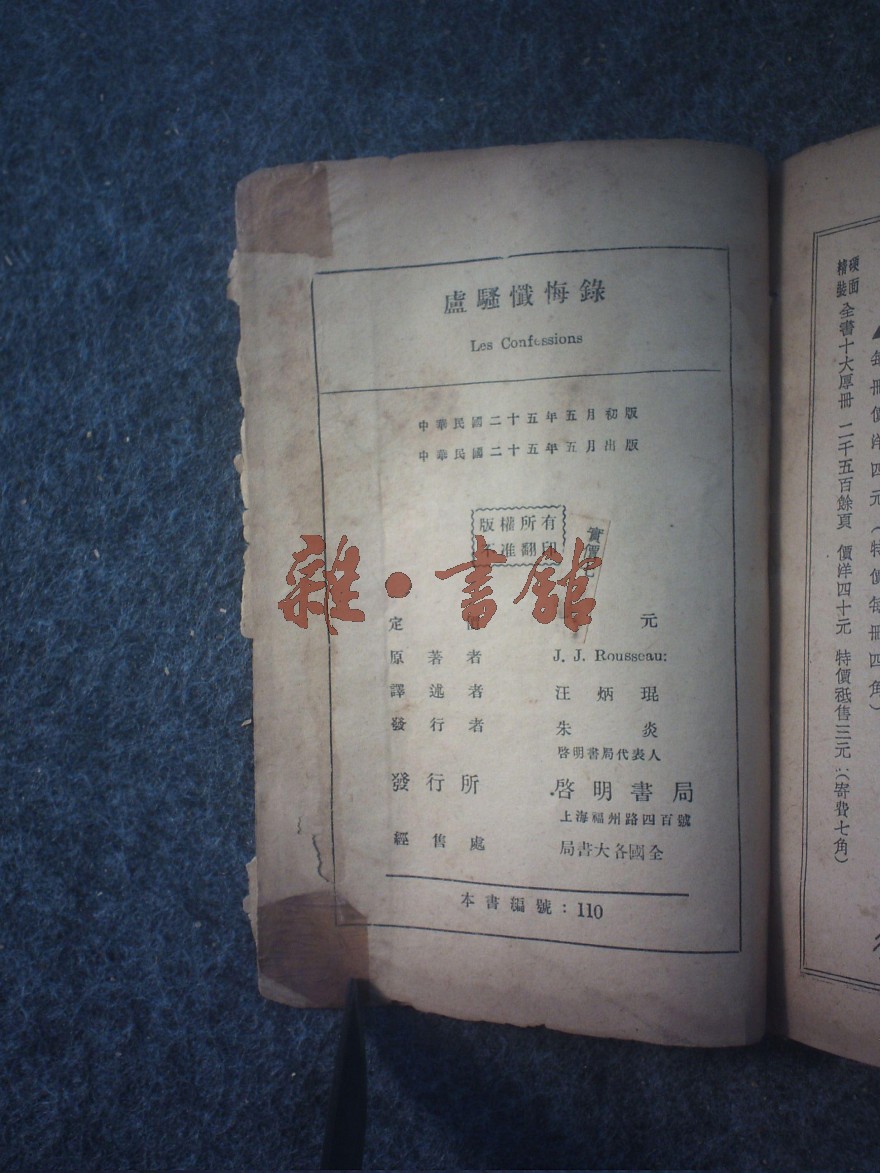 盧騷懺悔錄
Les Confessions
中華民國二十五年五月初版
中華民國二十五年五月出版
版權所有
不准翻印
實價
雜·書館
定 元
原著者 J. J. Rousseau:
譯述者 汪炳琨
發行者 朱炎
啓明書局代表人
發行所 啓明書局
上海福州路四百號
經售處 局書大各國全
本書編號：110
硬面
精裝
全書十大厚冊 二千五百餘頁 價洋四十元 特價祇售三元六(寄費七角)
每冊價洋四元(特價每冊四角)